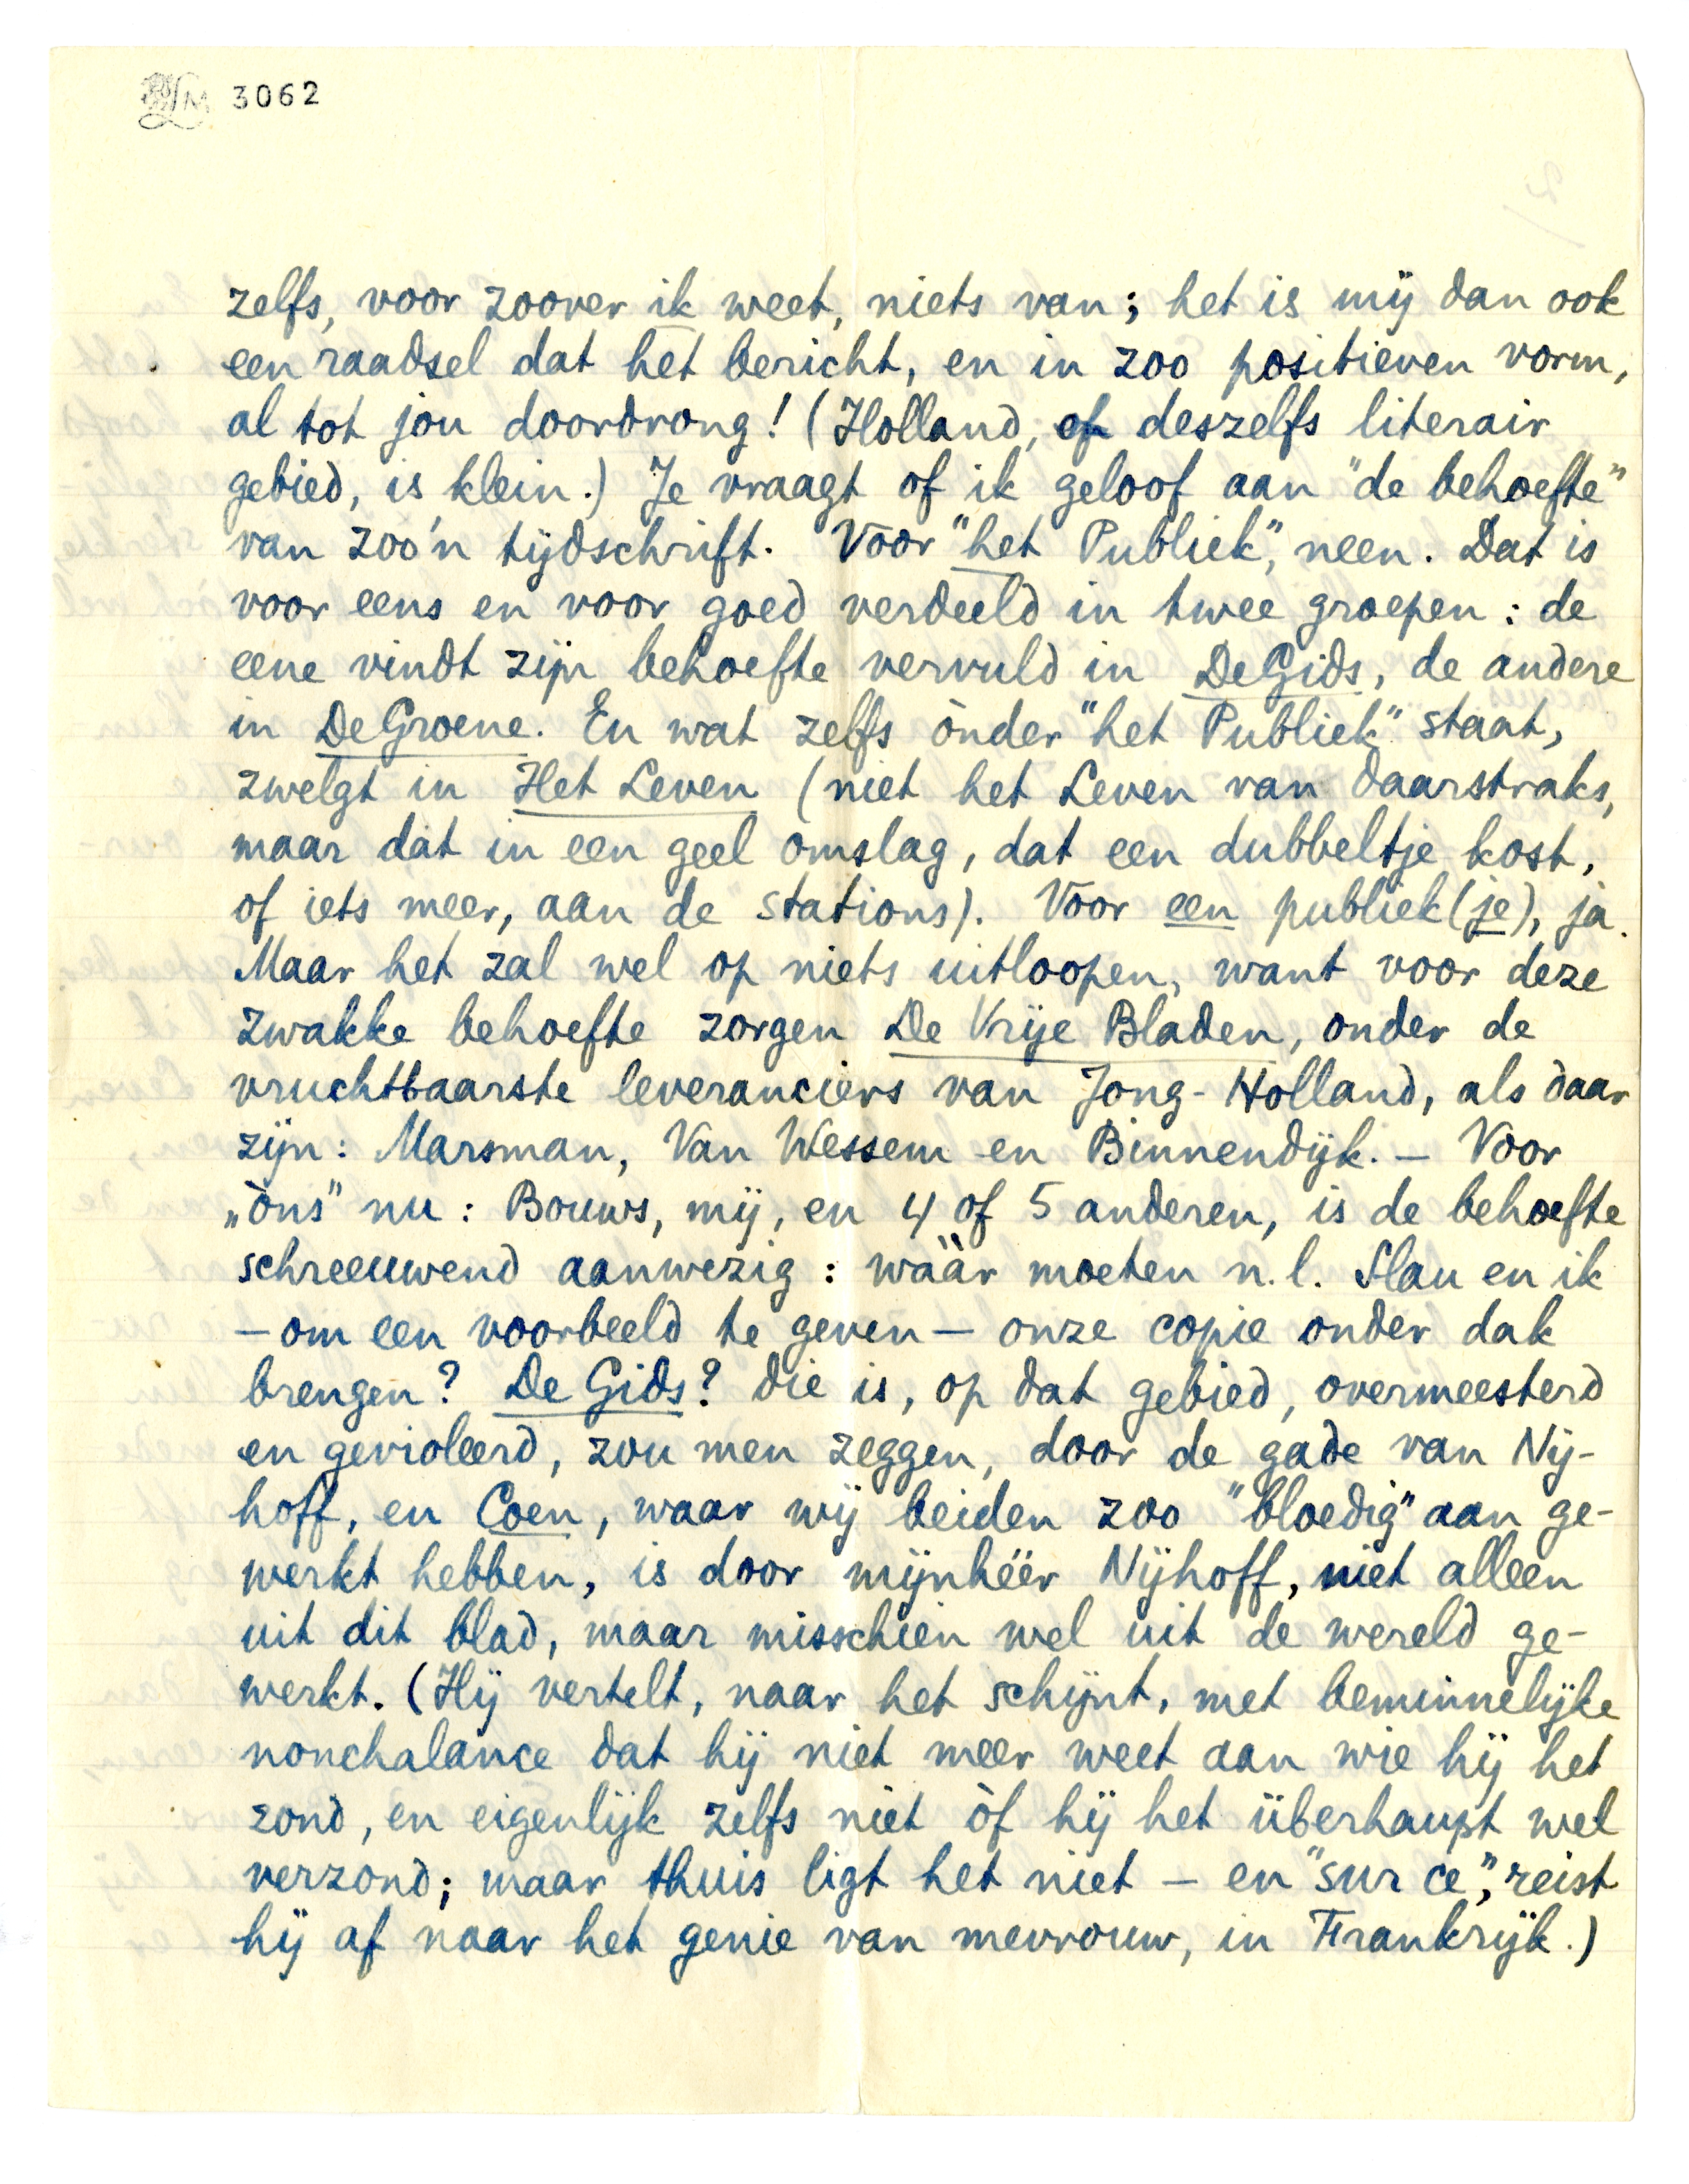 3062
zelfs, voor zoover ik weet, niets van; het is mij dan ook
een raadsel dat het bericht, en in zoo positieven vorm,
al tot jou doordrong! (Holland, of deszelfs literair
gebied, is klein.) Je vraagt of ik geloof aan "de behoefte"
van zoo'n tijdschrift. Voor "het Publiek", neen. Dat is
voor eens en voor goed verdeeld in twee groepen: de
eene vindt zijn behoefte vervuld in De Gids, de andere
in De Groene. En wat zelfs ònder "het Publiek" staat,
zwelgt in Het Leven (niet het Leven van daarstraks,
maar dat in een geel omslag, dat een dubbeltje kost,
of iets meer, aan de stations). Voor een publiek(je), ja.
Maar het zal wel op niets uitloopen, want voor deze
zwakke behoefte zorgen De Vrije Bladen, onder de
vruchtbaarste leveranciers van Jong-Holland, als daar
zijn: Marsman, Van Wessem en Binnendijk. — Voor
„òns" nu: Bouws, mij, en 4 of 5 anderen, is de behoefte
schreeuwend aanwezig: wààr moeten n.l. Slau en ik
— om een voorbeeld te geven — onze copie onder dak
brengen? De Gids? die is, op dat gebied, overmeesterd
en gevioleerd, zou men zeggen, door de gade van Nij-
hoff, en Coen, waar wij beiden zoo "bloedig" aan ge-
werkt hebben, is door mijnhéér Nijhoff, niet alleen
uit dit blad, maar misschien wel uit de wereld ge-
werkt. (Hij vertelt, naar het schijnt, met beminnelijke
nonchalance dat hij niet meer weet aan wie hij het
zond, en eigenlijk zelfs niet òf hij het überhaupt wel
verzond; maar thuis ligt het niet — en "sur ce", reist
hij af naar het genie van mevrouw, in Frankrijk.)